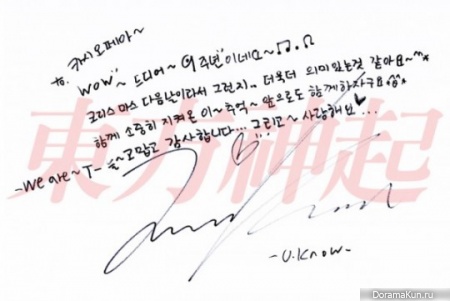 to. 카시오페아~
wow~ 드디어~ 9주년"이네요~♫.♫
크리스마스 다음날이라서 그런지.. 더욱더 의미있는것 같아요~^^*
함께 소중히 지켜온 이~추억~ 앞으로도 함께하자구요
-We are~T- 늘~고맙고 감사합니다... 그리고~ 사랑해요♥...
東方神起
-U.Know-
DoramaKun.ru